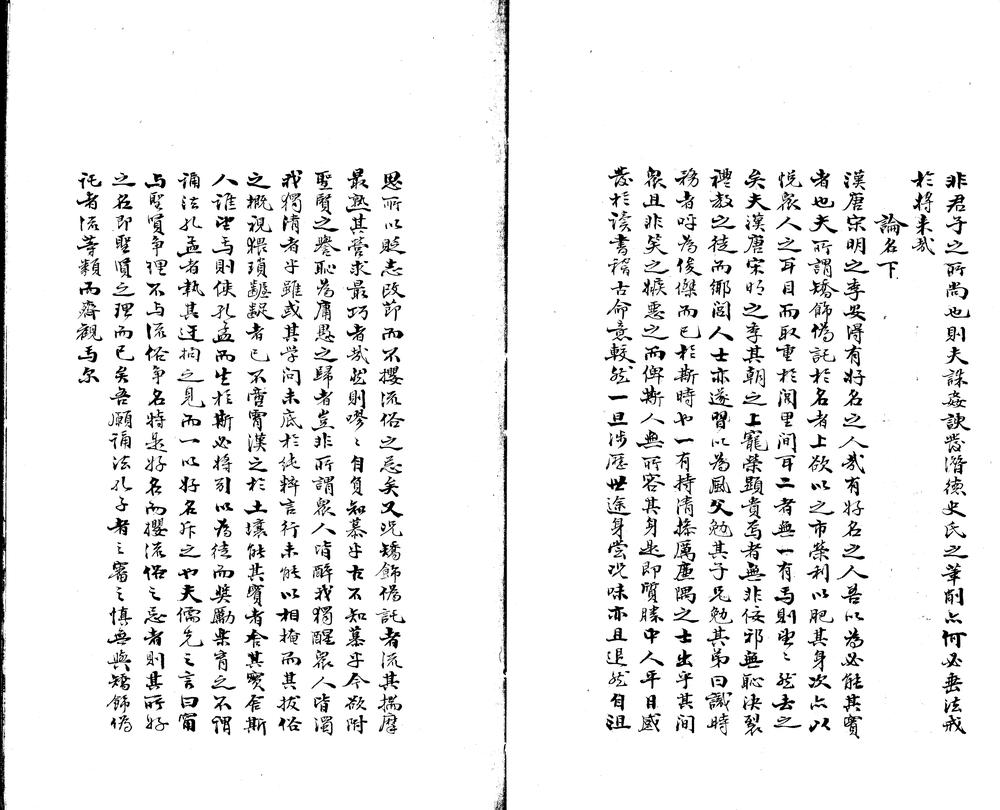 非君子之所尚也則夫誅姦諛發潛德史氏之筆削亦何必垂法戒
於將來哉
論名下
漢唐宋明之季安得有好名之人哉有好名之人吾以為必能其實
者也夫所謂矯飾偽託於名者上欲以之市榮利以肥其身次亦以
悅眾人之耳目而取重於閭里間耳二者無一有焉則望望然去之
矣夫漢唐宋明之季其朝之上寵榮顯貴焉者無非佞邪無恥決裂
禮教之徒而鄉閭人士亦遂習以為風父勉其子兄勉其弟曰識時
務者呼為俊傑而已於斯時也一有持清操厲廉隅之士出乎其間
眾且非笑之嫉惡之而俾斯人無所容其身是即質勝中人平日感
發於讀書稽古命意較然一旦涉歷世途身嘗況味亦且退然自沮
思所以貶志改節而不攖流俗之忌矣又況矯飾偽託者流其揣摩
最熟其營求最巧者哉然則嘐嘐自負知慕乎古不知慕乎今欲附
聖賢之譽恥為庸愚之歸者豈非所謂眾人皆醉我獨醒眾人皆濁
我獨清者乎雖或其学問未底於純粹言行未能以相掩而其拔俗
之概視猥瑣齷齪者已不啻霄漢之於土壤能其實者舍其實舍斯
人誰望焉則使孔孟而生於斯必將引以為徒而奬勵樂育之不謂
誦法孔孟者執其迂拘之見而一以好名斥之也夫儒先之言曰甯
与聖賢爭理不与流俗爭名特是好名而攖流俗之忌者則其所好
之名即聖賢之理而已矣吾願誦法孔子者之審之慎無與矯飾偽
託者流等類而齊觀焉尔